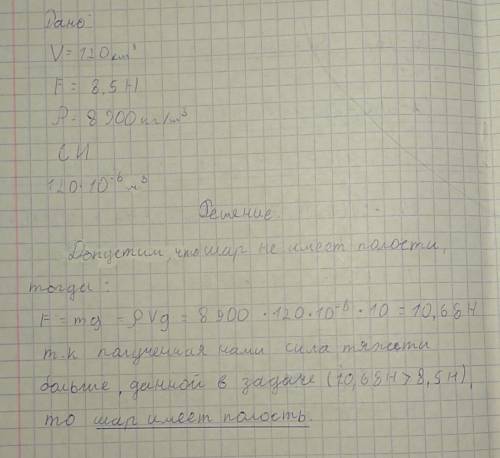 Дано:
V = 120 см³
F = 8,5 Н
ρ = 8900 кг/м³
СИ
120·10⁻⁶ м³
Решение
Допустим, что шар не имеет полости,
тогда:
F = mg = ρVg = 8900 · 120·10⁻⁶ · 10 = 10,68Н
т.к полученная нами сила тяжести
больше, данной в задаче (10,68Н > 8,5Н),
то шар имеет полость.